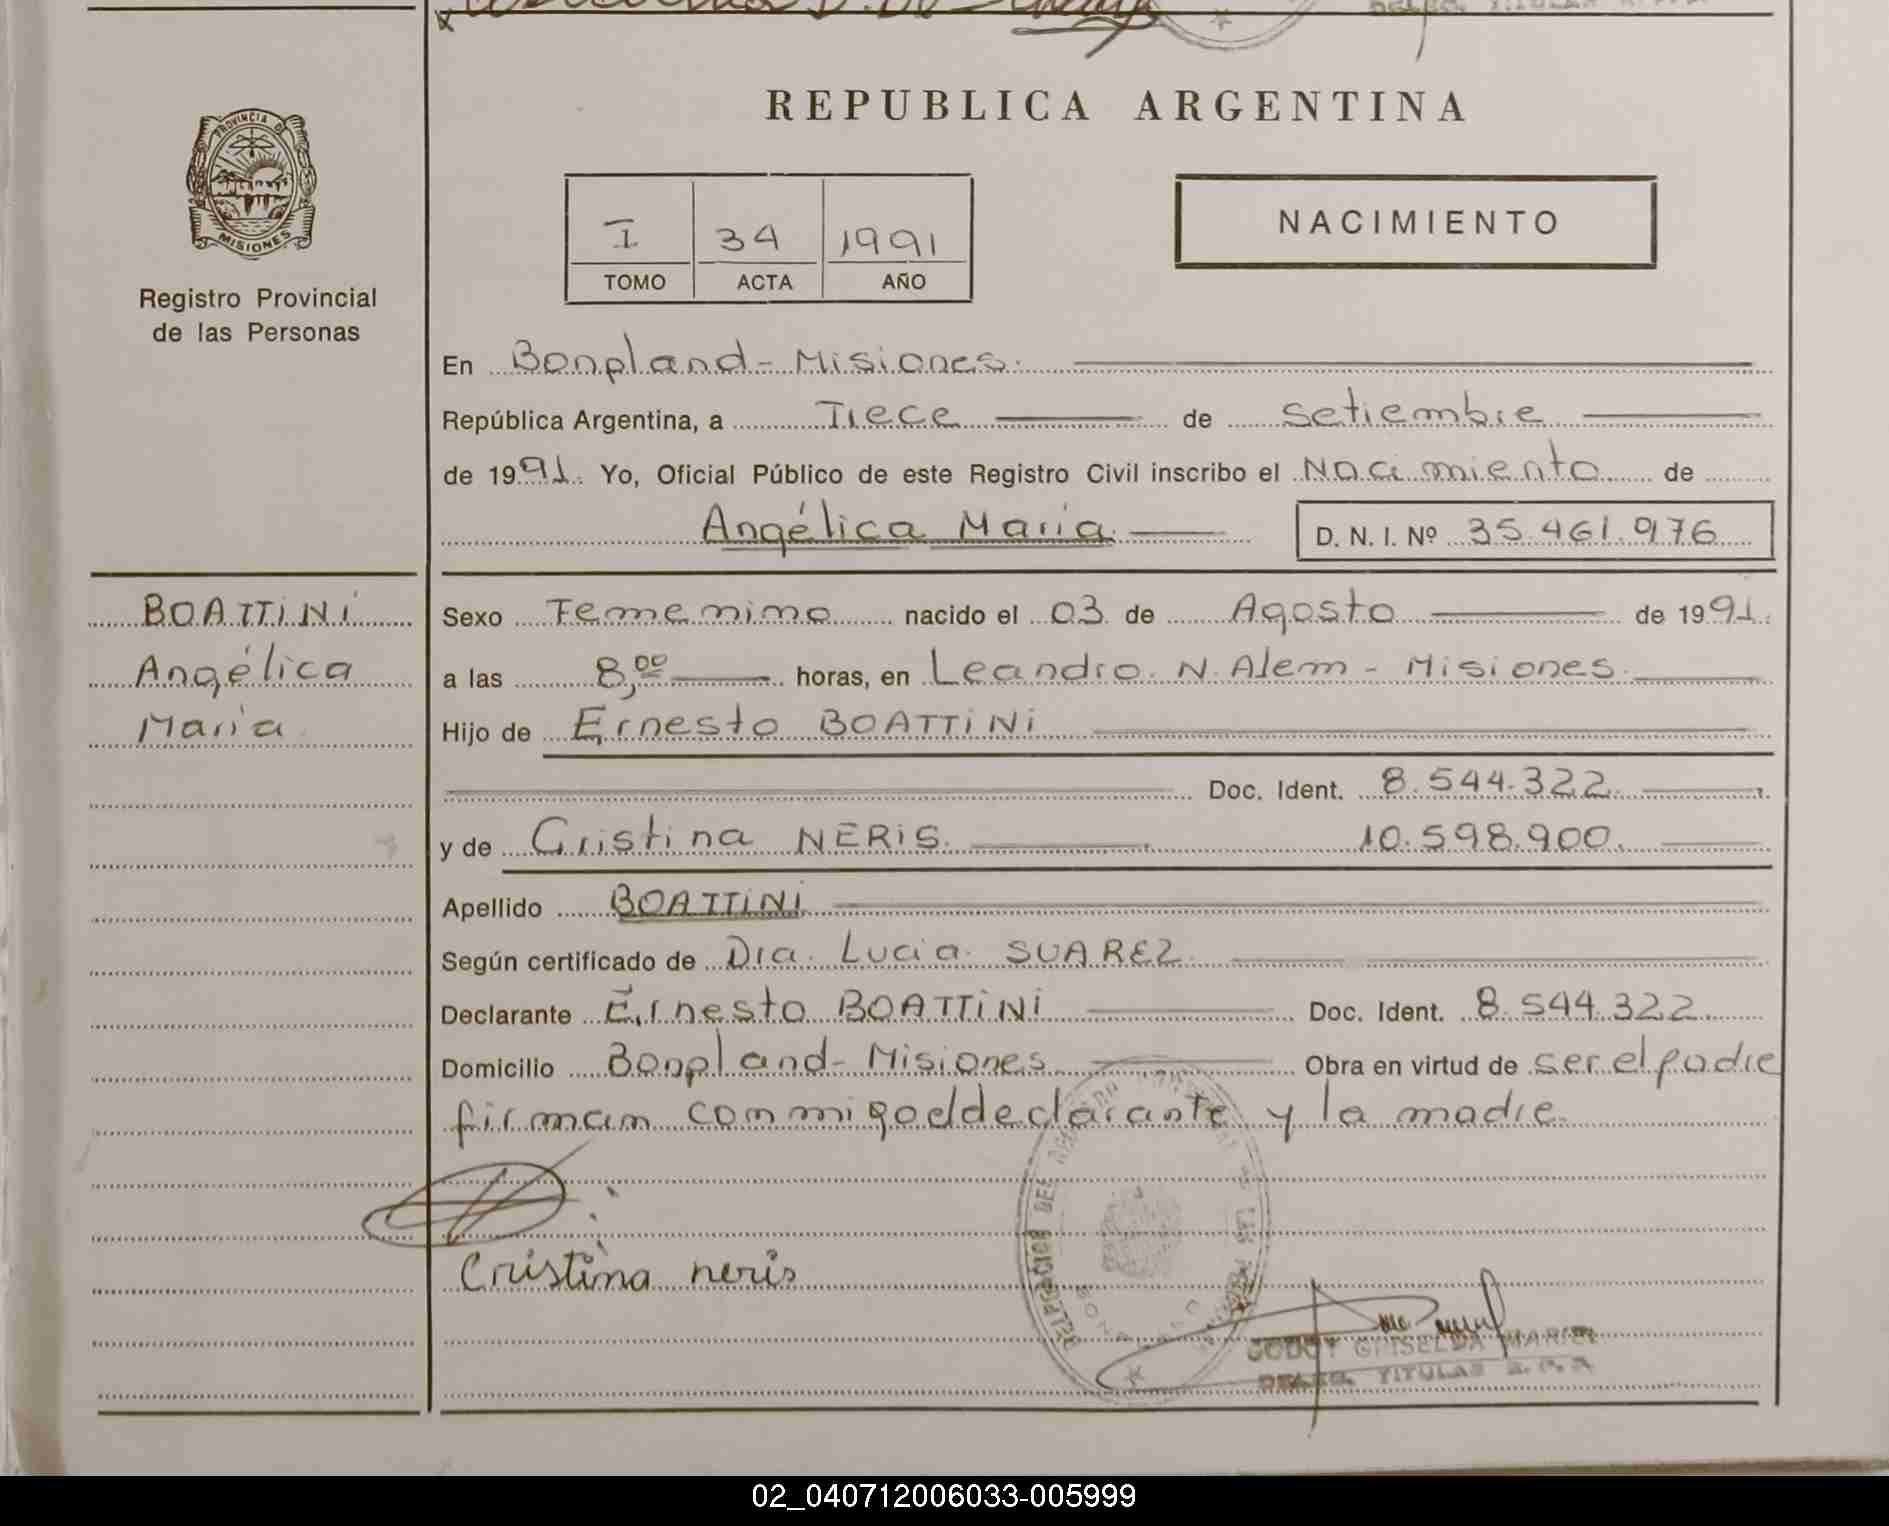 REPUBLICA ARGENTINA
PROVINCIA DE
MISIONES
Registro Provincial
de las Personas
I 34 1991
TOMO ACTA AÑO
NACIMIENTO
En Bonpland - Misiones.
República Argentina, a Trece de setiembre
de 1991. Yo, Oficial Público de este Registro Civil inscribo el Nacimiento de
Angélica María. D. N. I. Nº 35.461.976
BOATTINI
Angélica
María
Sexo Femenino nacido el 03 de Agosto de 1991.
a las 8,00 horas, en Leandro N. Alem - Misiones.
Hijo de Ernesto BOATTINI
Doc. Ident. 8.544.322.
y de Cristina NERIS. 10.598.900.
Apellido BOATTINI
Según certificado de Dra. Lucia SUAREZ.
Declarante Ernesto BOATTINI Doc. Ident. 8.544.322.
Domicilio Bonpland - Misiones Obra en virtud de ser el padre
firman conmigo el declarante y la madre.
Cristina neris
GODOY GRISELDA MARIEL
DELEG. TITULAR R.P.P.
02_040712006033-005999